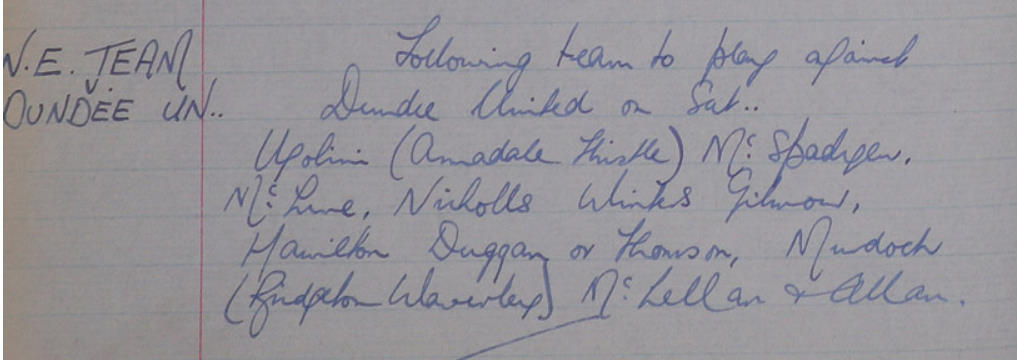 N.E. TEAM Following team to play against
V.
DUNDEE UN.. Dundee United on Sat..
Ugolini (Armadale Thistle) Mc Spadyen,
Mc Lure, Nicholls Winks Gilmour,
Hamilton Duggan or Thomson, Murdoch
(Bridgeton Waverley) Mc Lellan & Allan.